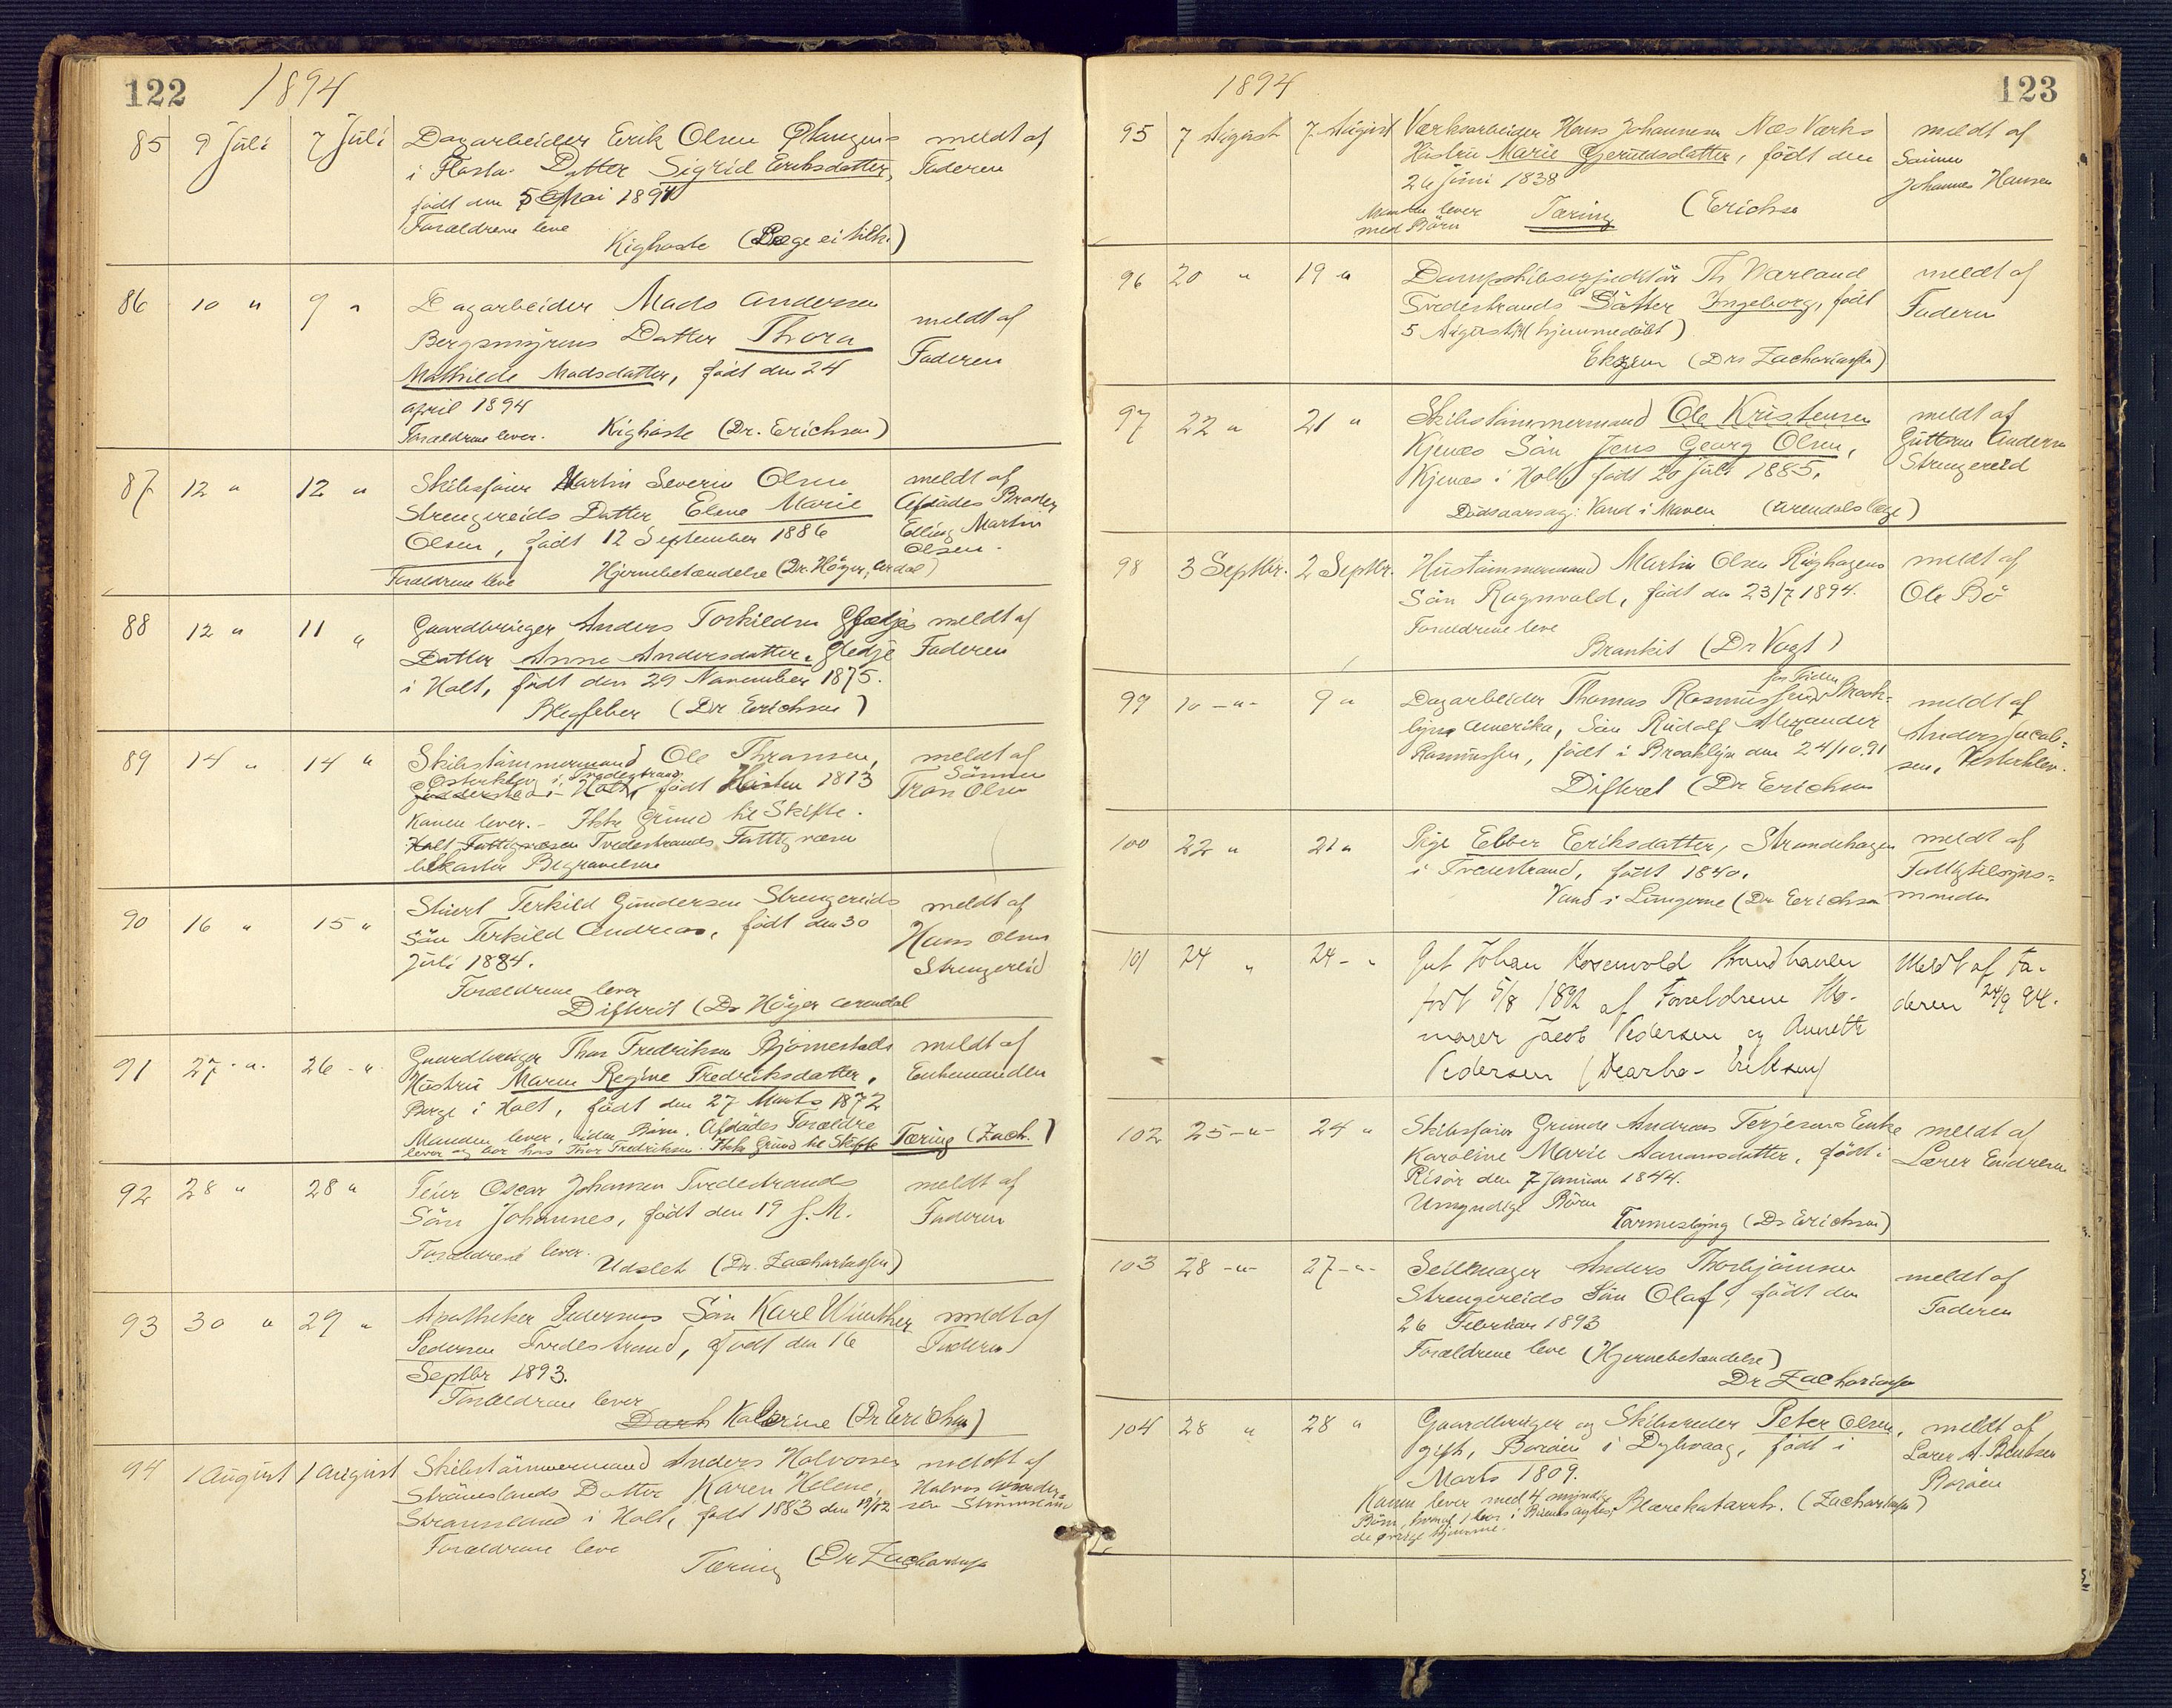 122 1894
85 9 Juli 7 Juli Dagarbeider Erik Olsen Østungens meldt af
i Flosta. Datter Sigrid Eriksdatter, Faderen
født den 5 Mai 1894
Forældrene leve
Kighoste (Læge ei tilk.)
86 10 " 9 " Dagarbeider Mads Andersen meldt af
Bergsmyrens Datter Thora Faderen
Mathilde Madsdatter, født den 24
April 1894
Forældrene lever. Kighoste (Dr. Erichsen)
87 12 " 12 " Skibsfører Martin Severin Olsen meldt af
Strengereids Datter Elene Marie Afdødes Broder
Olsen, født 12 September 1886 Edling Martin
Olsen.
Forældrene leve Hjernebetændelse (Dr. Höyer, Ardal)
88 12 " 11 " Gaardbruger Anders Torkildsen Gjedjes meldt af
Datter Anne Andersdatter. Gledje Faderen
i Holt, født den 29 November 1875.
Blegfeber (Dr Erichsen)
89 14 " 14 " Skibstömmermand Ole Thransen, meldt af
Osterkleiv i Tvedestrand Sönnen
i Holt, født Hösten 1813 Tran Olsen
Konen lever. - Ikke Grund til Skifte.
Holt Fattigvæsen Tvedestrands Fattigvæsen
bekoster Begravelsen
90 16 " 15 " Stuert Terkild Gundersen Strengereids meldt af
Sön Terkild Andreas, født den 30 Hans Olsen
Juli 1884. Strengereid
Forældrene lever
Difterit (Dr Höyer Arendal
91 27 - " - 26 - " Gaardbruger Thor Fredriksen Bjørnestads meldt af
Hustru Maren Regine Fredriksdatter, Enkemanden
Berge i Holt, født den 27 Marts 1872
Manden lever, uden Börn. Afdødes Forældre
lever og bor hos Thor Fredriksen. Ikke Grund til Skifte Tæring (Zach.)
92 28 " 28 " Oscar Johansen Tvedestrands meldt af
Sön Johannes, født den 19 f. M. Faderen
Forældrene lever.
Udslet (Dr. Zachariassen)
93 30 " 29 " Apotheker Pedersens Sön Karl Winther meldt af
Pedersen Tvedestrand, født den 16 Faderen
Septbr 1893.
Forældrene lever
Kolerine (Dr Erichsen)
94 1 August 1 August Skibstömmermand Anders Halvorsen meldt af
Strömslands Datter Karen Helene, Halvor Ander-
Strömsland i Holt, født 1883 den 19/12 sen Strömsland
Forældrene leve
Tæring (Dr Zachariassen
1894 123
95 7 August 7 August Værksarbeider Hans Johannesen Næs Værks meldt af
Hustru Marie Gjeruldsdatter, født den Sönnen
26 Juni 1838 Johannes Hansen
Manden lever Tæring (Erichsen
med Börn
96 20 " 19 " Dampskibsexpeditör Th Værland meldt af
Tvedestrands Datter Ingeborg, født Faderen
5 August (hjemmedöbt)
Ekzem (Dr Zachariassen)
97 22 " 21 " Skibstömmermand Ole Kristensen meldt af
Kjenes Sön Jens Georg Olsen, Guttorm Andersen
Kjenes i Holt, født 20 Juli 1885. Strengereid
Dödsaarsag: Vand i Maven (Arendals Læge)
98 3 Septbr. 2 Septbr. Hustömmermand Martin Olsen Ringhagens meldt af
Sön Ragnvald, født den 23/7 1894. Ole Bö
Forældrene leve
Bronkit (Dr Vogt)
99 10 - " - 9 " Dagarbeider Thomas Rasmussen for Tiden Brook- meldt af
lyn Amerika, Sön Rudolf Alexander Anders Jacob-
Rasmussen, født i Brooklyn den 24/10.91 sen, Vesterkleiv.
Difterit (Dr Erichsen
100 22 " 21 " Pige Ebber Eriksdatter, Strandehagen meldt af
i Tvedestrand, født 1840. Fattigtilsyns-
Vand i Lungerne (Dr Erichsen manden
101 24 " 24 - " Gut Johan Rosenvold Strandhaven Meldt af Fa-
født 5/8 1892 af Forældrene Sko- deren 24/9 94.
mager Jacob Pedersen og Annette
Pedersen (Diarho- Eriksen)
102 25 - " - 24 " Skibsfører Grunde Andreas Terjesens Enke meldt af
Karoline Marie Aanonsdatter, født i Lærer Endresen
Risör den 7 Januar 1844.
Umyndige Börn
Tarmeslyng (Dr Erichsen)
103 28 - " - 27 - " - Seilmager Anders Thorbjörnsen meldt af
Strengereids Sön Olaf, født den Faderen
26 Februar 1893
Forældrene leve (Hjernebetændelse)
Dr Zachariassen
104 28 " 28 " Gaardbruger og Skibsreder Peter Olsen, meldt af
gift, Boröen i Dybvaag, født i Lærer A. Bentsen
Marts 1809. Boröen
Konen lever med 4 myndige Blærekatarrh. (Zachariassen)
Börn, hvoraf 1 bor i Buenos ayres,
de övrige hjemme.